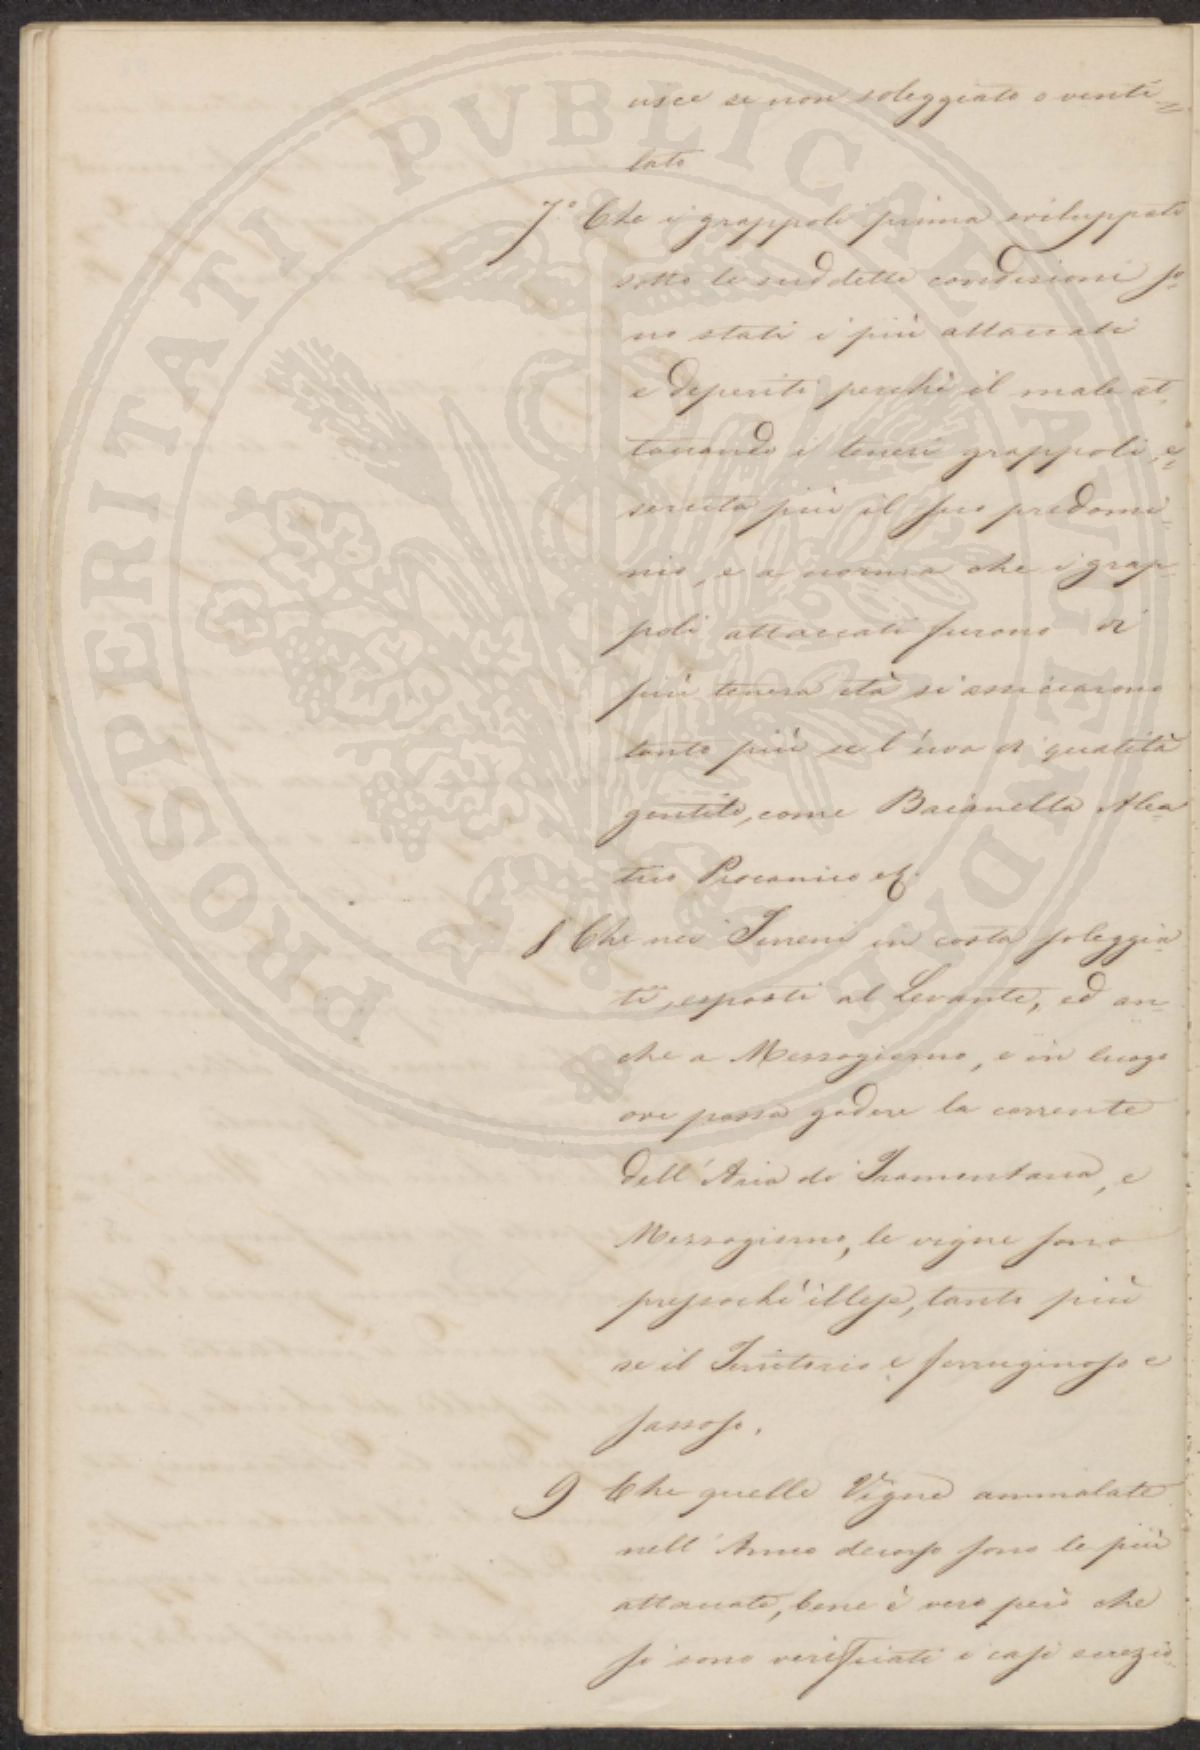 usce se non soleggiato o venti=
lato
7.° Che i grappoli prima sviluppati
sotto le suddette condizioni so-
no stati i più attaccati
e deperiti perchè il male at-
taccando i teneri grappoli, e=
sercita più il suo predomi-
nio, e a norma che i grap-
poli attaccati furono di
più tenera età si assiccarono
tanto più se l'uva di qualità
gentile, come Bacianella Alea
tico Procanico ec.
8 Che nei Terreni in costa soleggia-
ti, esposti al Levante, ed an-
che a Mezzogiorno, e in luogo
ove possa godere la corrente
dell'Aria di Tramontana, e
Mezzogiorno, le vigne sono
pressochè illese, tanto più
se il Territorio e ferruginoso e
sassoso.
9 Che quelle Vigne ammalate
nell'Anno decorso sono le più
attaccate, bene è vero però che
si sono verificati i casi eccezio-
PROSPERITATI PVBLICAE AVGENDAE